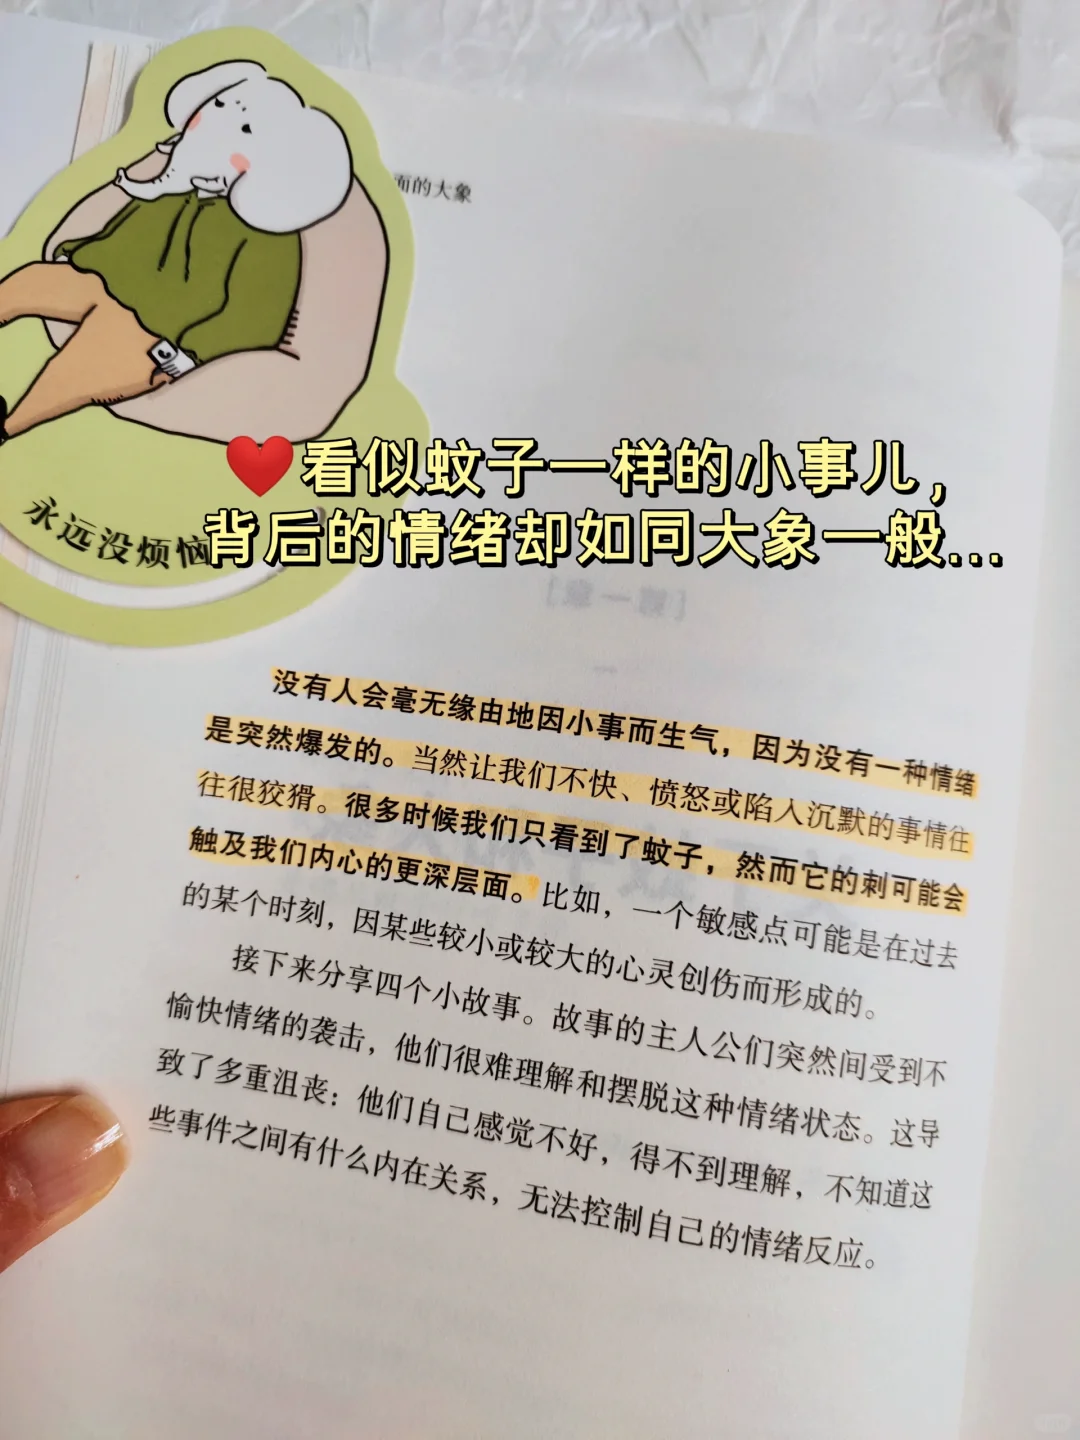 面的大象
❤️看似蚊子一样的小事儿，
背后的情绪却如同大象一般...
永远没烦恼
[第一章]
没有人会毫无缘由地因小事而生气，因为没有一种情绪
是突然爆发的。当然让我们不快、愤怒或陷入沉默的事情往
往很狡猾。很多时候我们只看到了蚊子，然而它的刺可能会
触及我们内心的更深层面。比如，一个敏感点可能是在过去
的某个时刻，因某些较小或较大的心灵创伤而形成的。
接下来分享四个小故事。故事的主人公们突然间受到不
愉快情绪的袭击，他们很难理解和摆脱这种情绪状态。这导
致了多重沮丧：他们自己感觉不好，得不到理解，不知道这
些事件之间有什么内在关系，无法控制自己的情绪反应。